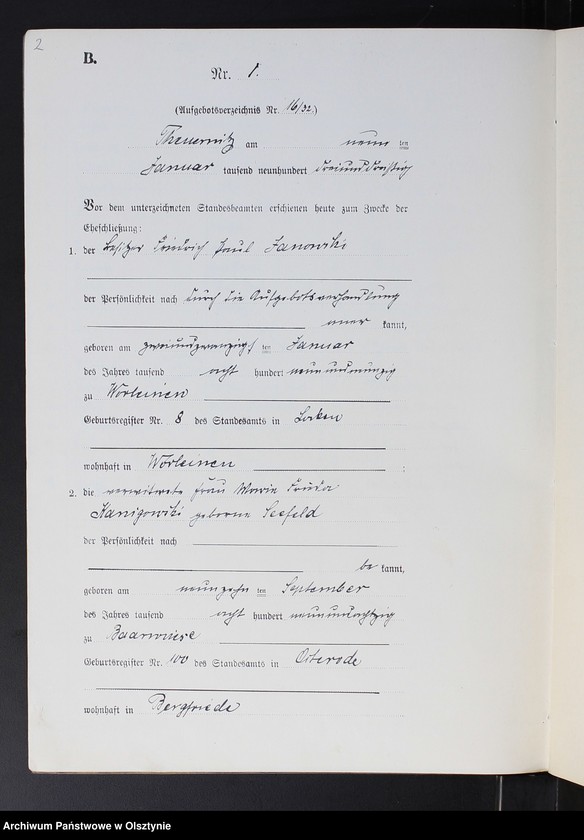 2
B.
Nr. 1.
(Aufgebotsverzeichnis Nr. 16/32.)
Theuernitz am neun ten
Januar tausend neunhundert dreiunddreißig
Vor dem unterzeichneten Standesbeamten erschienen heute zum Zwecke der
Eheschließung:
1. der Besitzer Friedrich Paul Janowski
der Persönlichkeit nach durch die Aufgebotsverhandlung
aner kannt,
geboren am zweiundzwanzigs ten Januar
des Jahres tausend acht hundert neunundneunzig
zu Worleinen
Geburtsregister Nr. 8 des Standesamts in Locken
wohnhaft in Worleinen ;
2. die verwitwete Frau Marie
geborene Seefeld
der Persönlichkeit nach
be kannt,
geboren am neunzehn ten September
des Jahres tausend acht hundert neunundachtzig
zu Baarwiese
Geburtsregister Nr. 100 des Standesamts in Osterode
wohnhaft in Bergfriede
Archiwum Państwowe w Olsztynie